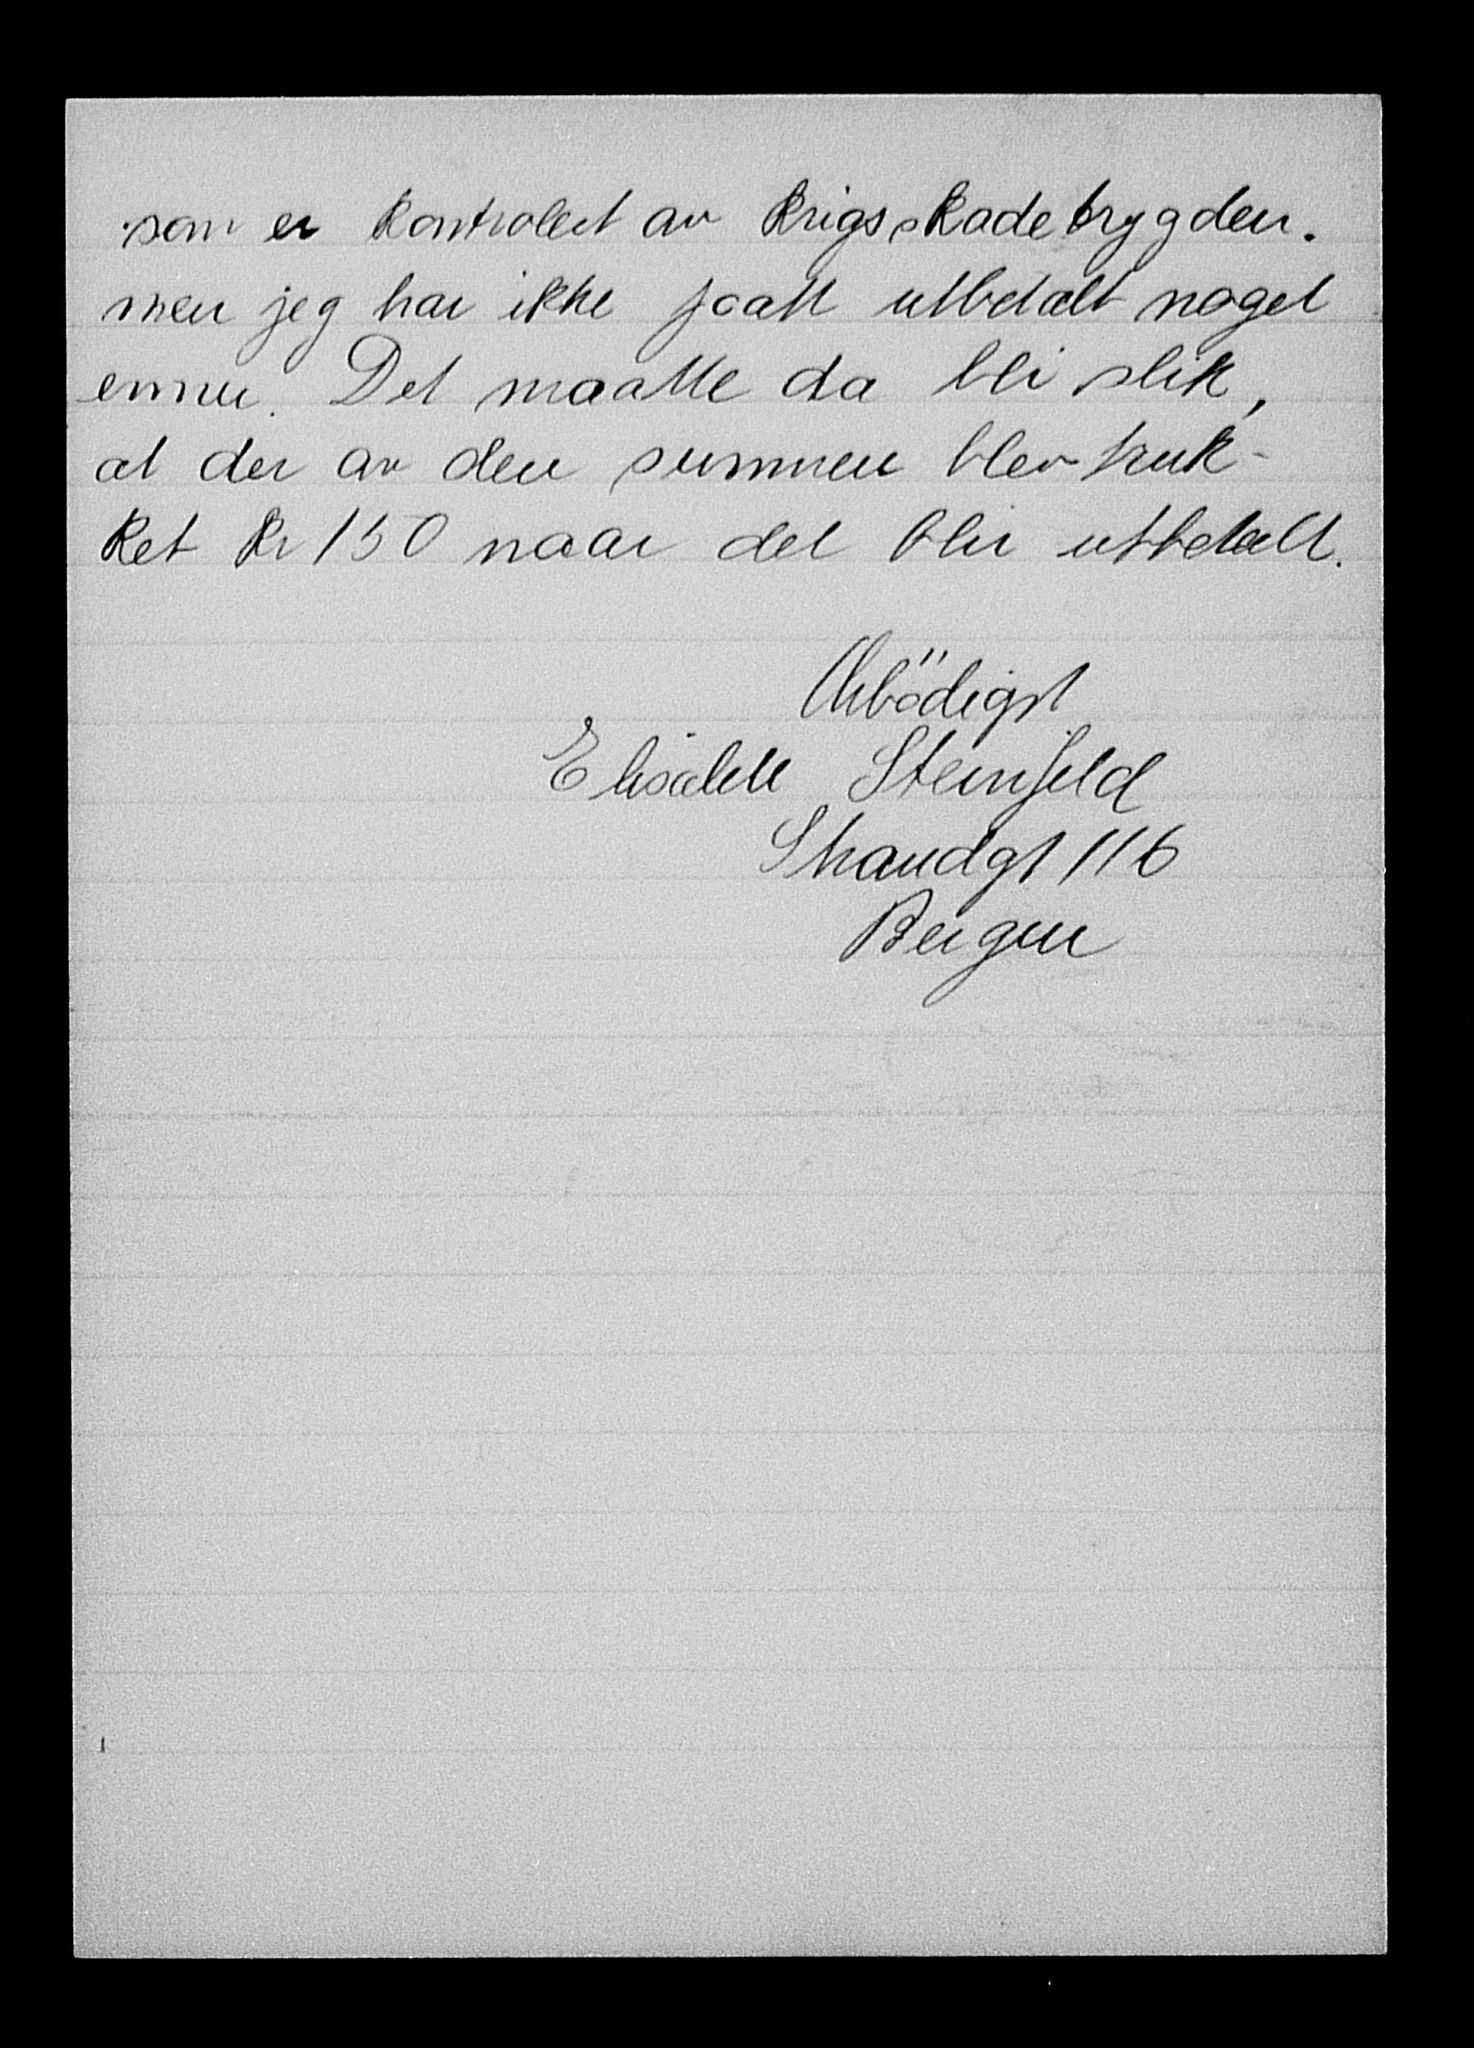 som er kontrolert av Krigsskadetrygden.
men jeg har ikke faatt utbetalt noget
ennu. Det maatte da bli slik,
at der av den summen blev truk-
ket Kr 150 naar det blir utbetalt.
Ærbödigst
Elisabeth Steinfeld
Strandgt 116
Bergen